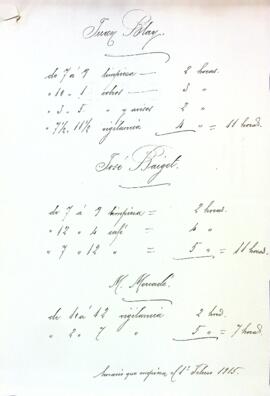 Blay.
de 7 á 9 limpieza — 2 horas.
" 10 - 1 cobros — 3 "
" 3 - 5 " y avisos 2 "
" 7½ 11½ vigilancia 4 " = 11 horas.
José Baiget.
de 7 á 9 limpieza = 2 horas.
" 12 " 4 café = 4 "
" 7 " 12 " = 5 " = 11 horas.
M.
de 11 á 12 vigilancia 2 horas.
" 2 " 7 " 5 " = 7 horas.
horario que empieza el 1º Febrero 1915.